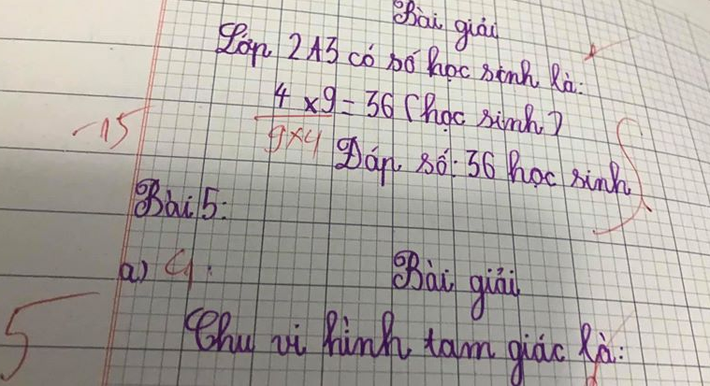 Bài giải
Lớp 2A3 có số học sinh là:
4 x 9 = 36 (học sinh)
-15
9x4
Đáp số: 36 học sinh
Bài 5:
a) 4
Bài giải
5
Chu vi hình tam giác là: